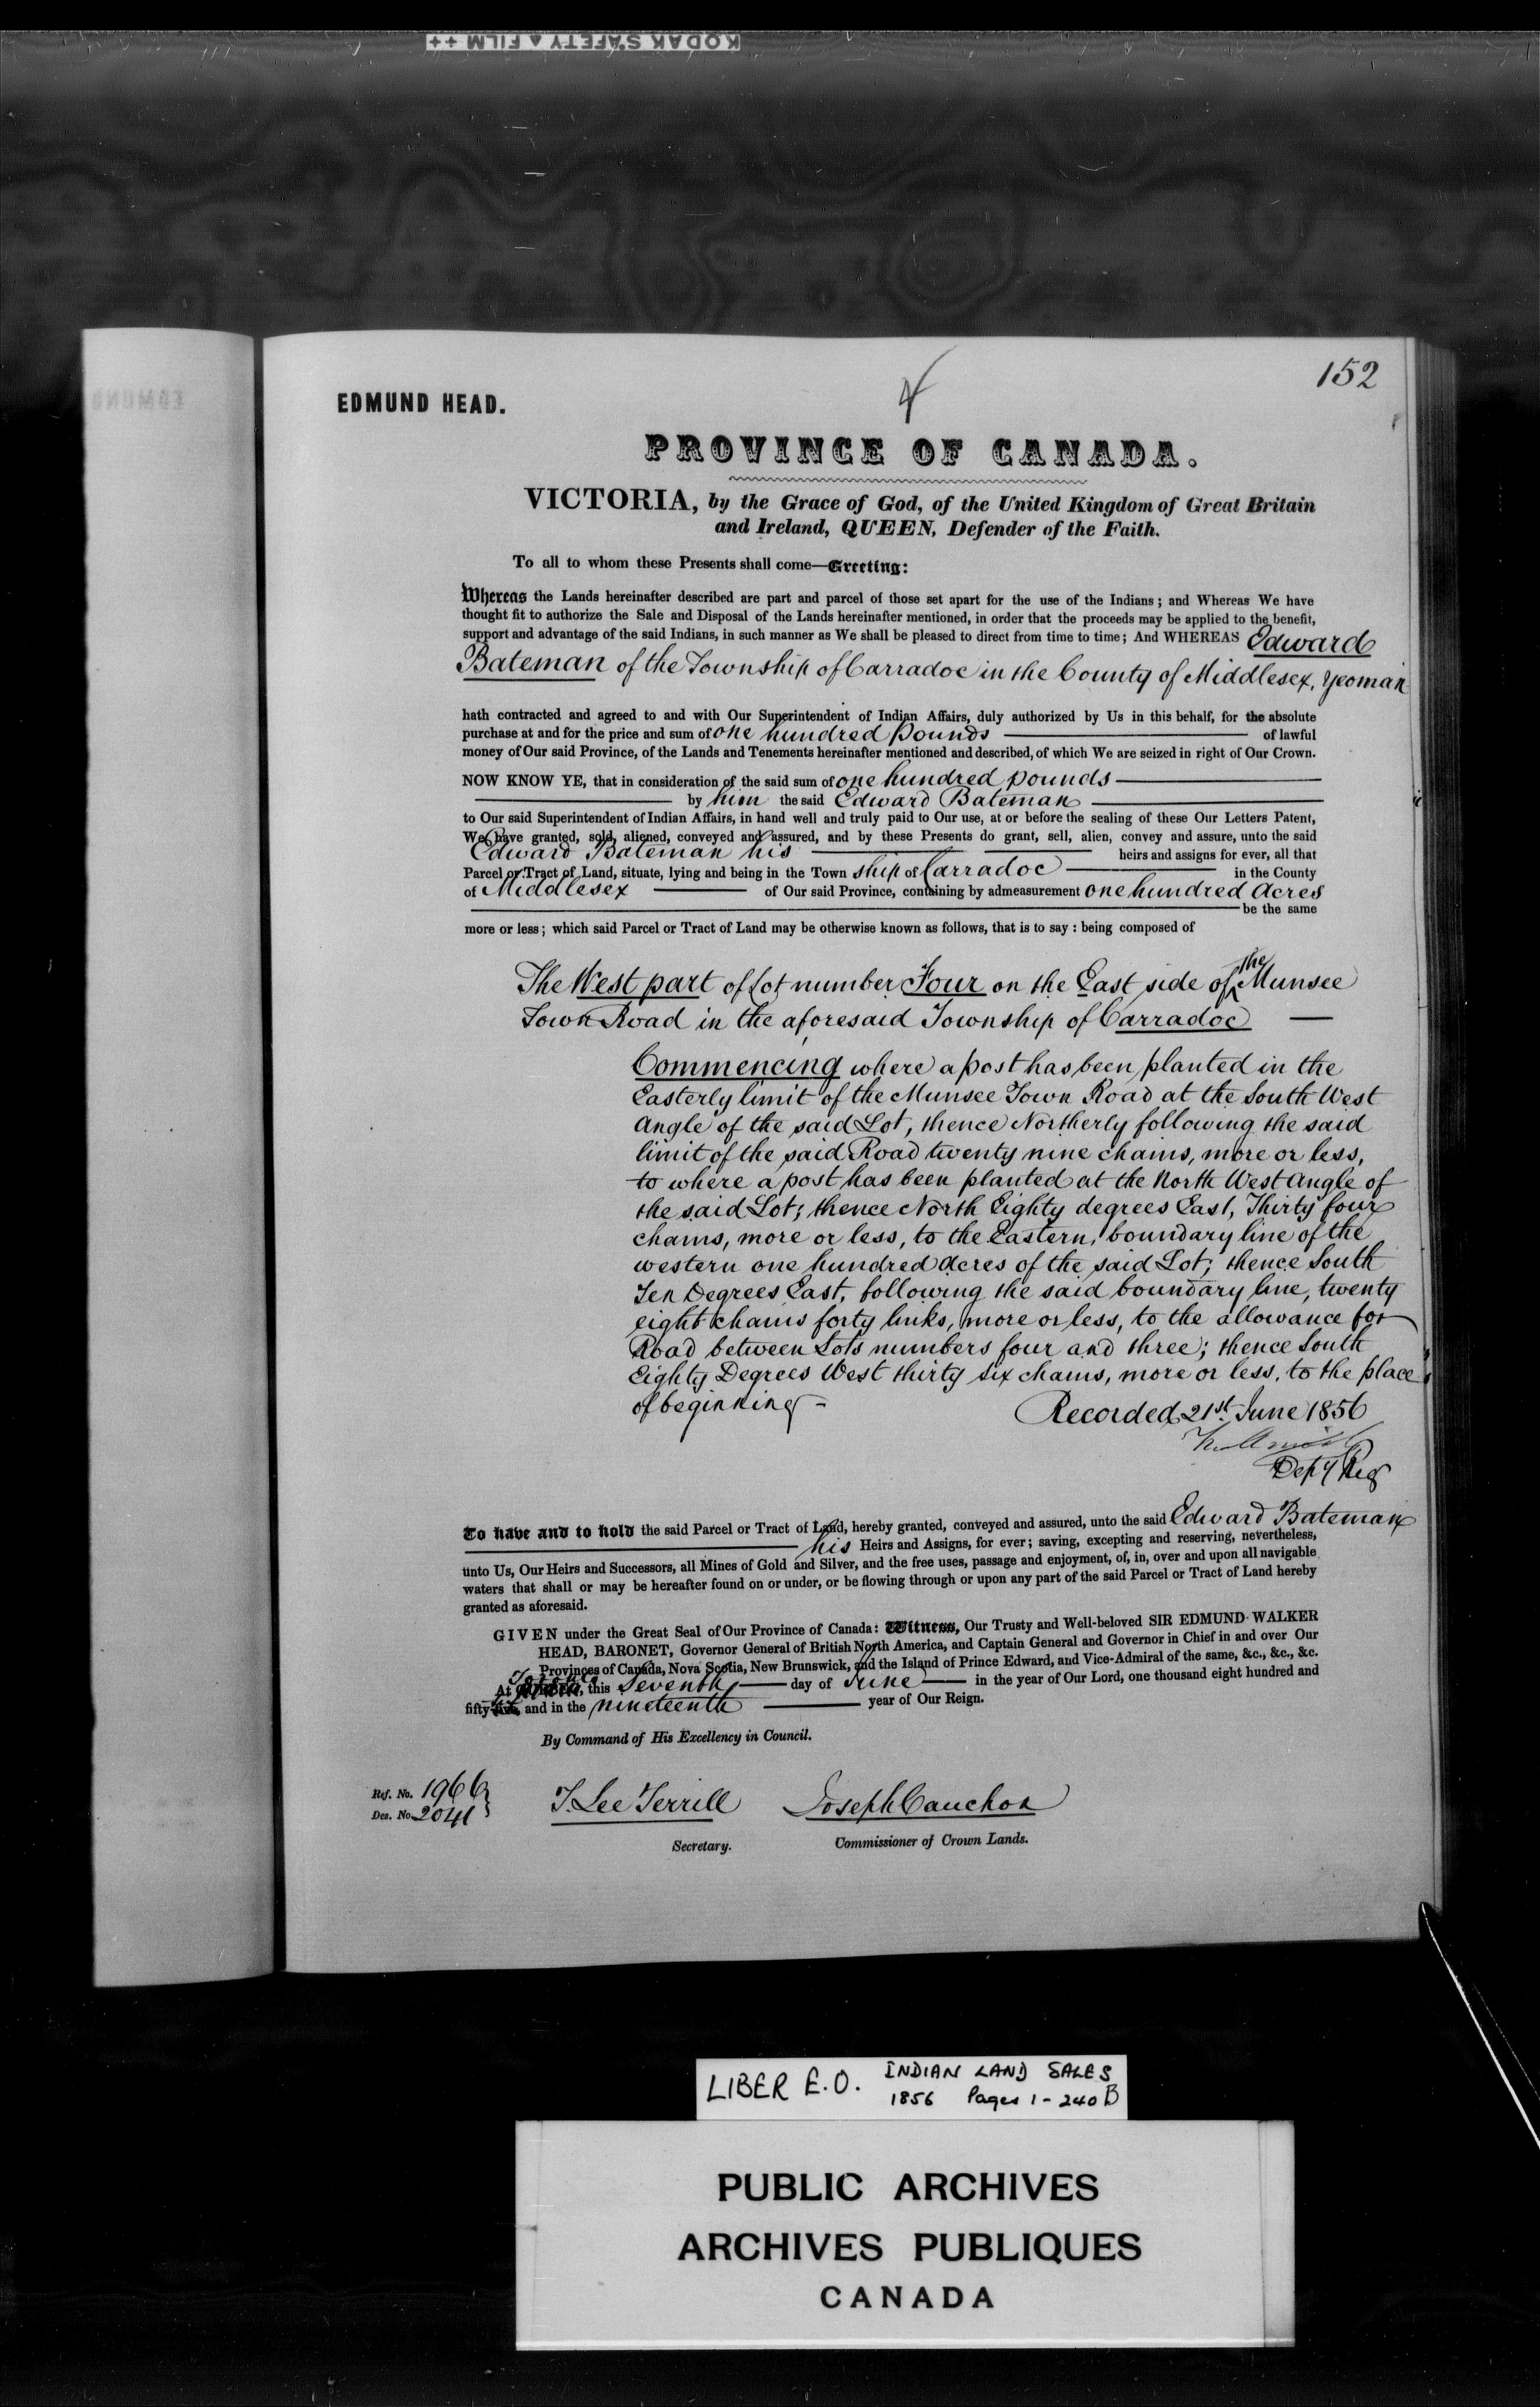 KODAK SAFETY FILM ++
152
4
EDMUND HEAD.
PROVINCE OF CANADA.
VICTORIA, by the Grace of God, of the United Kingdom of Great Britain
and Ireland, QUEEN, Defender of the Faith.
To all to whom these Presents shall come—Greeting:
Whereas the Lands hereinafter described are part and parcel of those set apart for the use of the Indians; and Whereas We have
thought fit to authorize the Sale and Disposal of the Lands hereinafter mentioned, in order that the proceeds may be applied to the benefit,
support and advantage of the said Indians, in such manner as We shall be pleased to direct from time to time; And WHEREAS Edward
Bateman of the Township of Carradoc in the County of Middlesex, Yeoman
hath contracted and agreed to and with Our Superintendent of Indian Affairs, duly authorized by Us in this behalf, for the absolute
purchase at and for the price and sum of one hundred pounds of lawful
money of Our said Province, of the Lands and Tenements hereinafter mentioned and described, of which We are seized in right of Our Crown.
NOW KNOW YE, that in consideration of the said sum of one hundred pounds
by him the said Edward Bateman
to Our said Superintendent of Indian Affairs, in hand well and truly paid to Our use, at or before the sealing of these Our Letters Patent,
We have granted, sold, aliened, conveyed and assured, and by these Presents do grant, sell, alien, convey and assure, unto the said
Edward Bateman his heirs and assigns for ever, all that
Parcel or Tract of Land, situate, lying and being in the Town ship of Carradoc in the County
of Middlesex of Our said Province, containing by admeasurement one hundred Acres
be the same
more or less; which said Parcel or Tract of Land may be otherwise known as follows, that is to say: being composed of
The West part of Lot number Four on the East side of the Munsee
Town Road in the aforesaid Township of Carradoc
Commencing where a post has been planted in the
Easterly limit of the Munsee Town Road at the South West
Angle of the said Lot, thence Northerly following the said
limit of the said Road twenty nine chains, more or less,
to where a post has been planted at the North West Angle of
the said Lot; thence North Eighty degrees East, Thirty four
chains, more or less, to the Eastern, boundary line of the
western one hundred acres of the said Lot; thence South
Ten Degrees East, following the said boundary line, twenty
eight chains forty links, more or less, to the allowance for
Road between Lots numbers four and three; thence South
Eighty Degrees West thirty six chains, more or less, to the place
of beginning –
Recorded 21st June 1856
Depy Reg
To have and to hold the said Parcel or Tract of Land, hereby granted, conveyed and assured, unto the said Edward Bateman
his Heirs and Assigns, for ever; saving, excepting and reserving, nevertheless,
unto Us, Our Heirs and Successors, all Mines of Gold and Silver, and the free uses, passage and enjoyment, of, in, over and upon all navigable
waters that shall or may be hereafter found on or under, or be flowing through or upon any part of the said Parcel or Tract of Land hereby
granted as aforesaid.
GIVEN under the Great Seal of Our Province of Canada: Witness, Our Trusty and Well-beloved SIR EDMUND WALKER
HEAD, BARONET, Governor General of British North America, and Captain General and Governor in Chief in and over Our
Provinces of Canada, Nova Scotia, New Brunswick, and the Island of Prince Edward, and Vice-Admiral of the same, &c., &c., &c.
At Toronto, this Seventh day of June in the year of Our Lord, one thousand eight hundred and
fifty and in the nineteenth year of Our Reign.
By Command of His Excellency in Council.
Ref. No. 1966
Des. No. 2041
T. Lee Terrill Joseph Cauchon
Secretary. Commissioner of Crown Lands.
LIBER E.O. INDIAN LAND SALES
1856 Pages 1 - 240B
PUBLIC ARCHIVES
ARCHIVES PUBLIQUES
CANADA